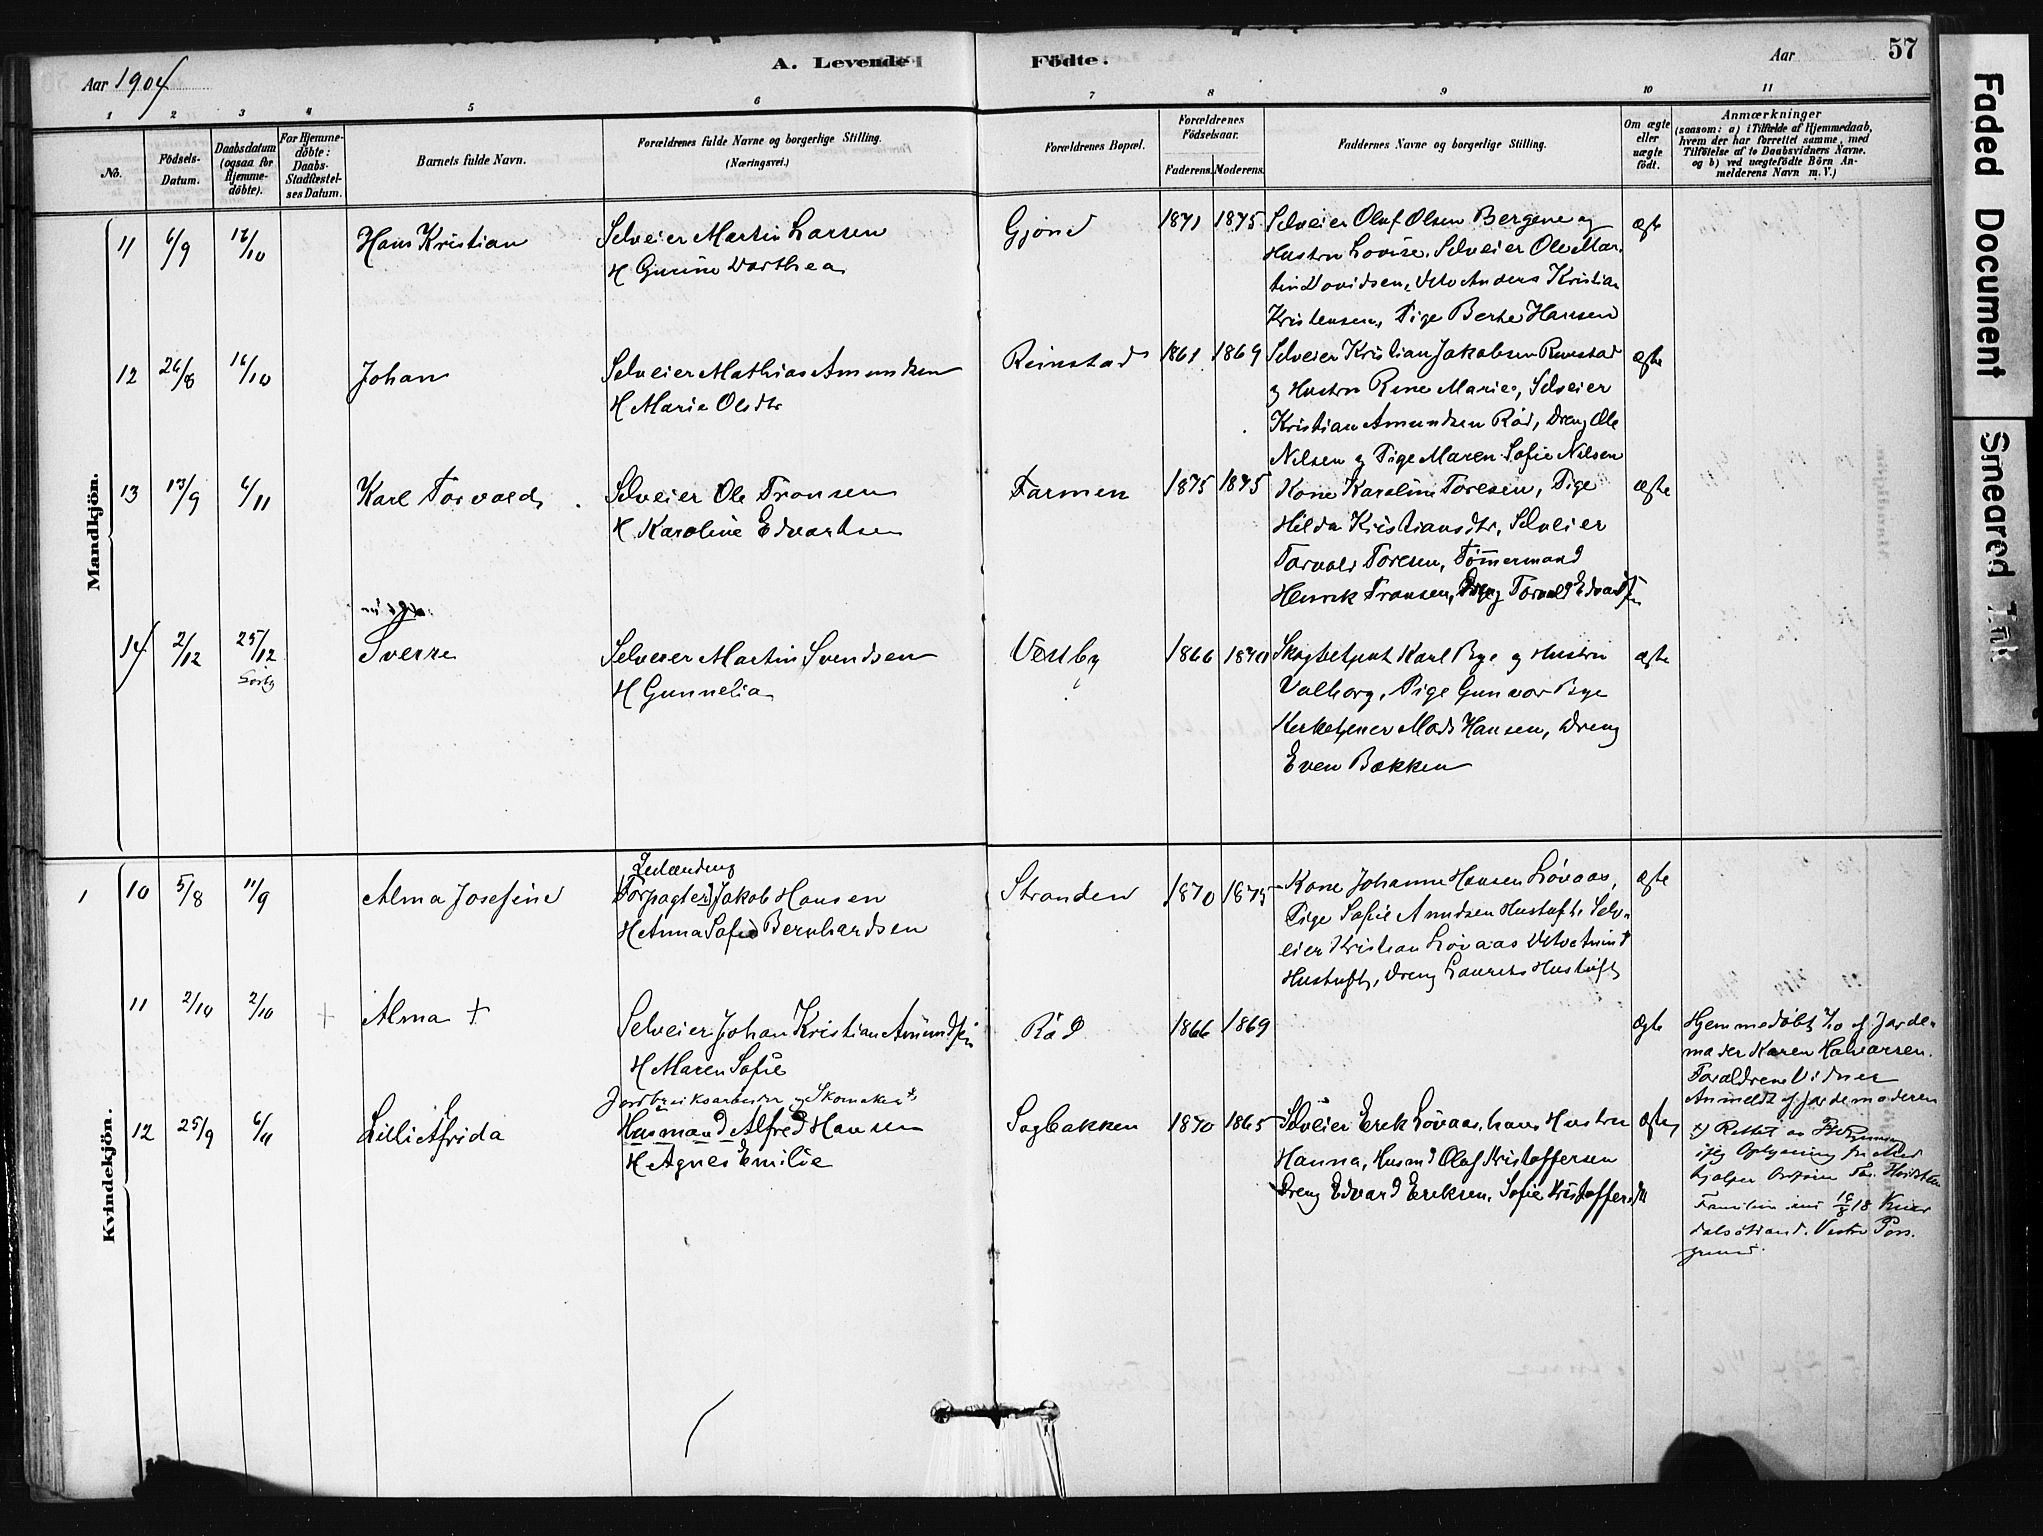 57
Aar 1904
A. Levende Födte.
Aar
1 2 3 4 5 6 7 8 9 10 11
No.
Födsels-Datum.
Daabsdatum (ogsaa for Hjemme-döbte).
For Hjemme-döbte: Daabs-Stadfæstel-ses Datum.
Barnets fulde Navn.
Forældrenes fulde Navne og borgerlige Stilling.
(Næringsvei.)
Forældrenes Bopæl.
Forældrenes Födselsaar.
Faderens. Moderens.
Faddernes Navne og borgerlige Stilling.
Om ægte eller uægte födt.
Anmærkninger
(saasom: a) i Tilfælde af Hjemmedaab, hvem der har forrettet samme, med Tilföielse af to Daabsvidners Navne, og b) ved uægtefödte Börn An-melderens Navn m. V.)
Mandkjön.
11 6/9 16/10 Hans Kristian
Selveier Martin Larsen
H Gurine Dorthea
Gjønd 1871 1875
Selveier Oluf Olsen Bergene og
Hustru Lovise, Selveier Ole Mar-
tin Davidsen, Ustv Anders Kristian
Kristensen, Pige Berte Hansen
ægte
12 26/8 16/10 Johan
Selveier Mathias Amundsen
H Marie Olsdtr
Reinstad 1861 1869
Selveier Kristian Jakobsen Reinstad
og Hustru Rine Marie, Selveier
Kristian Amundsen Röd, Dreng Ole
Nilsen og Pige Maren Sofie Nilsen
ægte
13 13/9 6/11 Karl Torvald
Selveier Ole Fransen
H Karoline Edvartsen
Farmen 1875 1875
Kone Karoline Toresen, Pige
Hilda Kristiansdtr, Selveier
Torvald Toresen, Tømmermand
Henrik Fransen, Dreng Torvald Edvardsen
ægte
14 2/12 25/12 Sverre
Selveier Martin Svendsen
H Gunnelia
Vestby 1866 1870
Karl Bye og Hustru
Valborg, Pige Gunvor Bye
Kirketjener Mads Hansen, Dreng
Even Bakken
ægte
Kvindekjön.
1 10 5/8 11/9 Alma Josefine
Forpagter Jakob Hansen
H Anna Sofie Bernhardsen
Stranden 1870 1875
Kone Johanne Hansen Løvaas,
Pige Sofie Amudsen Hustuft, Selv-
eier Kristian Løvaas Ustv Amund
Hustuft, Dreng Laurits Hustuft
ægte
11 2/10 2/10 + Alma +
Selveier Johan Kristian Amundsen
H Maren Sofie
Röd 1866 1869
ægte
Hjemmedøbt 2/10 af Jorde-
moder Karen Halvorsen.
Forældrene Vidner
Anmeldt af Jordemoderen
12 25/9 6/11 Lilli Afrida
Jordbruksarbeider og Skomaker x)
Husmand Alfred Hansen
H Agnes Emilie
Sagbakken 1870 1865
Selveier Erik Løvaas, hans Hustru
Hanna, Husmd Olaf Kristoffersen
Dreng Edvard Eriksen, Sofie Kristoffersdtr
ægte
x) Rettet av
Familien 16/8 18
Vestre Pors-
grund.
Faded Document
Smeared Ink